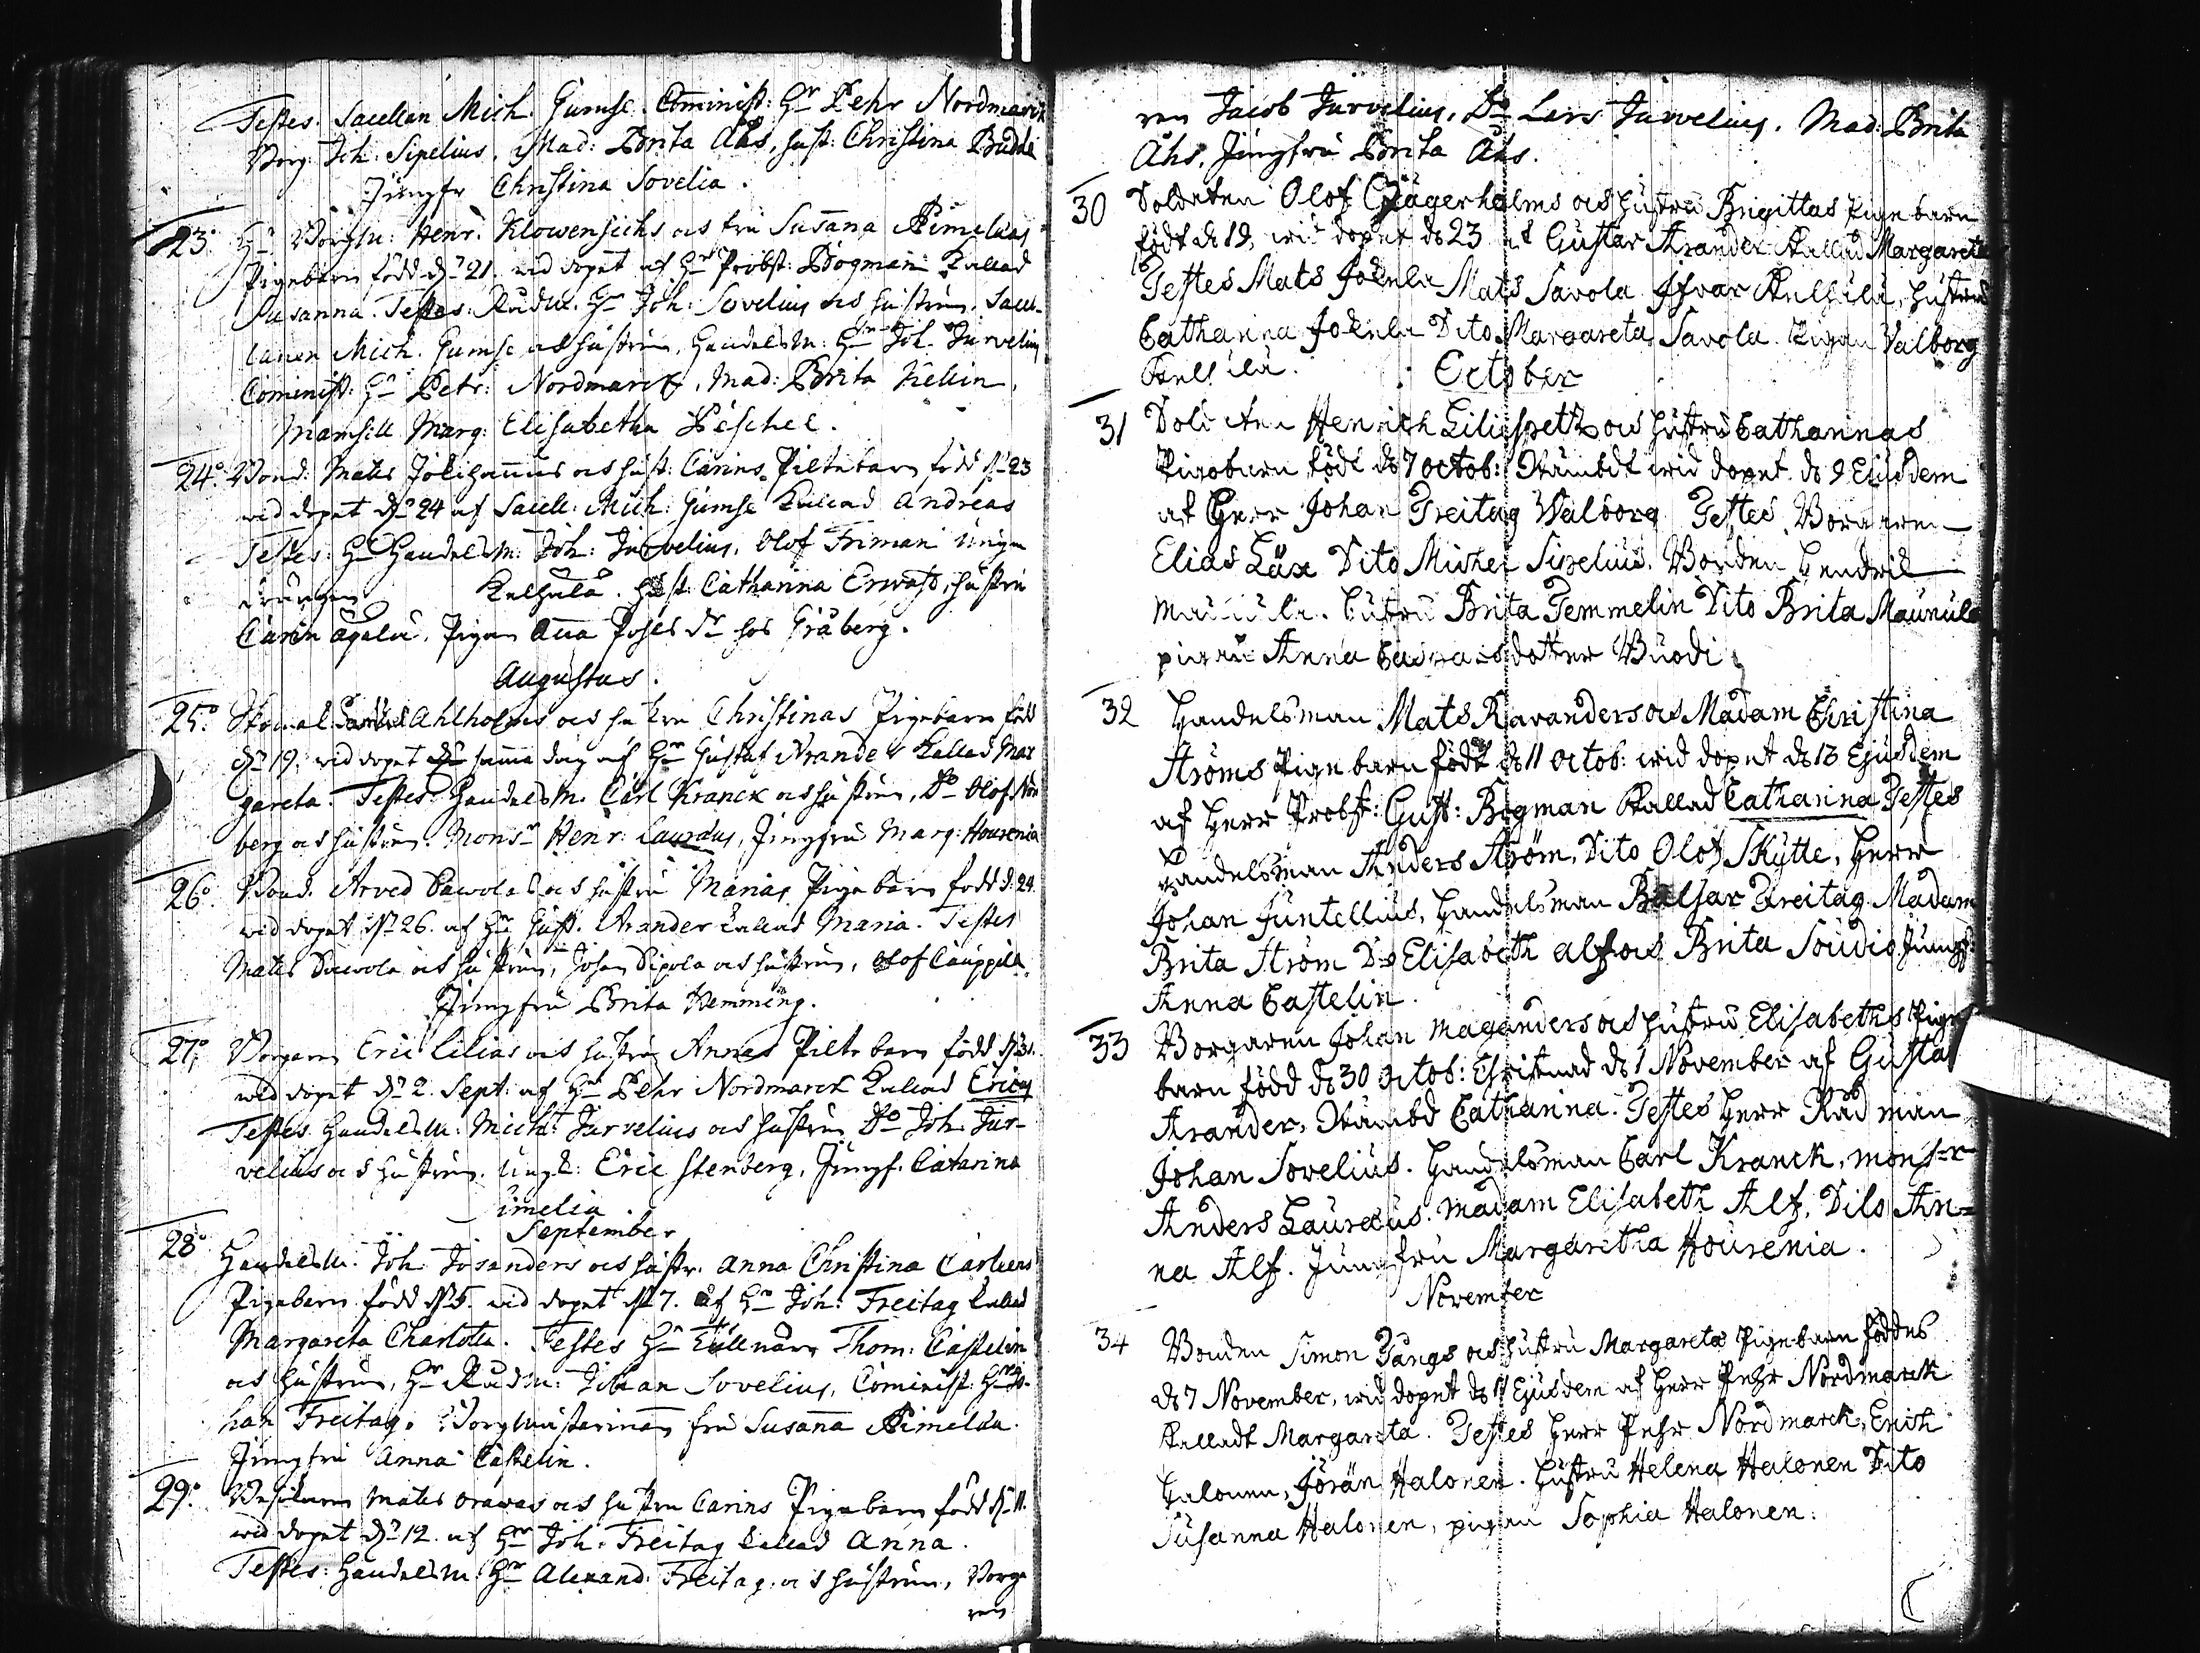 Testes. Sacellan Mich. Gumse. Cominist: Hr Pehr Nordmarck
Borg: Joh: Sipelius, Mad: Brita Åhs, hust: Christina Buddi
Jungfr Christina Sovelia.
23. Hr Borgm: Henr: Klowensichs och fru Susanna Rimelias
Pigebarn född d: 21. wid döpet af Hr Probst: Bogman Kallad
Susanna. Testes: Rådm. Hr Joh: Sovelius och hustrun, Sacel-
lanen Mich. Gumse och hustrun, Handelsm: Hr Joh. Jurvelius
Cominist: Hr Petr: Nordmarck, Mad: Brita Kellin,
Mamsell Marg: Elisabetha Péschel.
24. Bond: Mats Jokihannus och hust: Carins Piltebarn född d: 23
wid döpet d: 24 af Sacell: Mich: Gumse Kallad Andreas
Testes: Hr Handelsm: Joh: Jurvelius, Olof Friman unga
drängen Kalhula. Hust: Catharina Erwast, hustru
Carin Ågalu. Pigan Anna Josefs dr hos Fråberg.
Augustus.
25. Skomak Ahlholms och hustru Christinas Pigebarn född
d: 19. wid döpet samma dag af Hr Gustaf Arander Kallad Mar
gareta. Testes: Handelsm. Carl Kranck och hustrun, Do Olof Nor
berg och hustrun. Monsr Henr: Lauræus, Jungfru Marg: Hourenia
26. Bond. Arved Sawolas och hustru Marias Pigebarn född d: 24.
wid döpet d: 26. af Hr Gust. Arander Kallad Maria. Testes
Mats Sawola och hustrun, Johan Sipola och hustrun, Olof Cauppila
Jungfru Brita Hemming.
27. Borgarn Eric Lilias och hustru Annas Piltebarn född d: 31.
wid döpet d: 2. Sept: af Hr Pehr Nordmarck Kallad Ericus
Testes. Handelsm: Micha: Jurvelius och hustrun Do Joh: Jur-
velius och hustrun. Ungk: Eric Stenberg, Jungf. Catarina
imelia
September
28. Handelsm: Joh Josanders och hustr. Anna Christina Carlens
Pigebarn född d: 5. wid döpet d: 7. af Hr Joh: Freitag Kallad
Margareta Charlotta. Testes Hr Tullnärn Thom: Castelin
och hustrun, Hr Rådm: Johan Sovelius, Cominist: Hr Jo-
han Freitag. Borgmästarinan fru Susanna Rimelia.
Jungfru Anna Castelin.
29. Mats Orawas och hustru Carins Pigebarn född d: 11.
wid döpet d: 12. af Hr Joh: Freitag Kallad Anna.
Testes: Handelsm: Hr Alexand: Freitag och hustrun, Borga
ren
ren Jacob Jurvelius, Do Lars Jurvelius. Mad: Brita
Åhs, Jungfru Brita Åhs.
30 Soldaten Olof Jägerholms och hustru Brigittas Pigebarn
född d 19, wid döpet d 23 af Gustav Arander Kallad Margareta
Testes Mats Jokela Mats Savola Ifvar Kalhula, hustru
Catharina Jokela Dito Margareta Savola Pigan Valborg
Kalhula.
October
31 Soldaten Henrich Liliespetz och hustru Catharinas
Pigebarn född d 7 octob: Nämbdt wid döpet d 9 Ejusdem
af Herr Johan Freitag Walborg Testes Borgaren
Elias Läx Dito Michel Sipelius. Bonden Hendrik
Maunula. Hustru Brita Temmelin Dito Brita Maunula
pigan Anna Caspersdotter Buodi
32 Handelsman Mats Ravanders och Madam Christina
Ströms Pigebarn född d 11 octob: wid döpet d 13 Ejusdem
af Herr Probst: Gust: Bogman Kallad Catharina Testes
Handelsman Anders Ström, Dito Olof Skytte, Herr
Johan Juntellius, Handelsman Balsar Freitag Madam
Brita Ström Do Elisabeth Alf och Brita Soudio Jungf:
Anna Castelin.
33 Borgaren Johan Maganders och hustru Elisabeths Pige
barn född d 30 octob: Christnad d 1 November af Gustaf
Arander, Nämbd Catharina. Testes Herr Rådman
Johan Sovelius. Handelsman Carl Kranck, Mons=r
Anders Lauræus. Madam Elisabeth Alf, Dito An=
na Alf. Jungfru Margaretha Hourenia.
November
34 Bonden Simon Tångs och hustru Margaretas Pigebarn föddes
d 7 November, wid döpet d Ejusdem af Herr Pehr Nordmarck
Kalladt Margareta. Testes Herr Pehr Nordmarck, Erich
Halonen, Jörän Halonen. Hustru Helena Halonen Dito
Susanna Halonen, pigan Sophia Halonen.